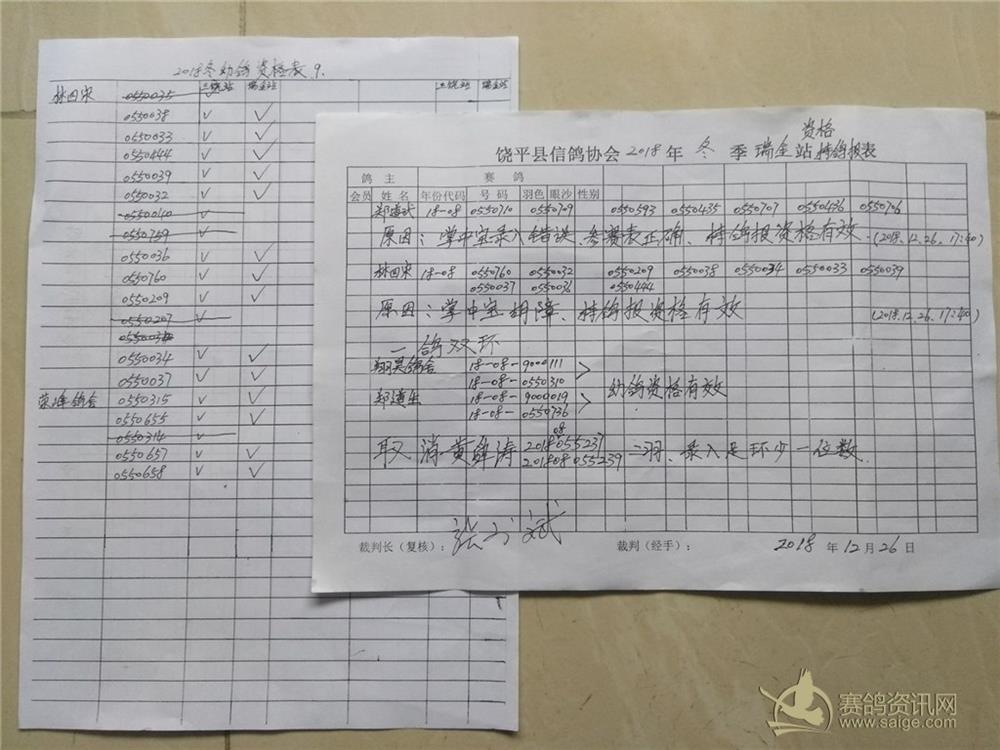 2018冬幼鸽资格表9.
三饶站 瑞金站 三饶站 瑞金站
林田宋 0550035 ✓
0550038 ✓ ✓
0550033 ✓ ✓
0550444 ✓ ✓
0550039 ✓ ✓
0550032 ✓ ✓
0550040 ✓
0550759 ✓
0550036 ✓ ✓
0550760 ✓ ✓
0550209 ✓ ✓
0550207 ✓
0550034 ✓ ✓
0550037 ✓ ✓
荣峰鸽舍 0550315 ✓ ✓
0550655 ✓ ✓
0550314 ✓
0550657 ✓ ✓
0550658 ✓ ✓
资格
饶平县信鸽协会2018年冬季瑞金站持鸽报表
鸽主 赛鸽
会员 姓名 年份代码 号码 羽色 眼沙 性别
18-08 0550710 0550709 0550593 0550435 0550707 0550436 0550706
原因：掌中宝录入错误、参赛表正确、持鸽报资格有效.(2018.12.26.17:40)
林田宋 18-08 0550760 0550032 0550209 0550038 0550034 0550033 0550039
0550037 0550036 0550444
原因：掌中宝故障、持鸽报资格有效 (2018.12.26.17:40)
一鸽双环
翔昊鸽舍 18-08-9000111
18-08-0550310
幼鸽资格有效
18-08-9000019
18-08-0550736
08
取消黄 涛 2018055237
201808055239 二羽、录入足环少一位数.
裁判长（复核）：
裁判（经手）：
2018年12月26日
赛鸽资讯网
www.saige.com